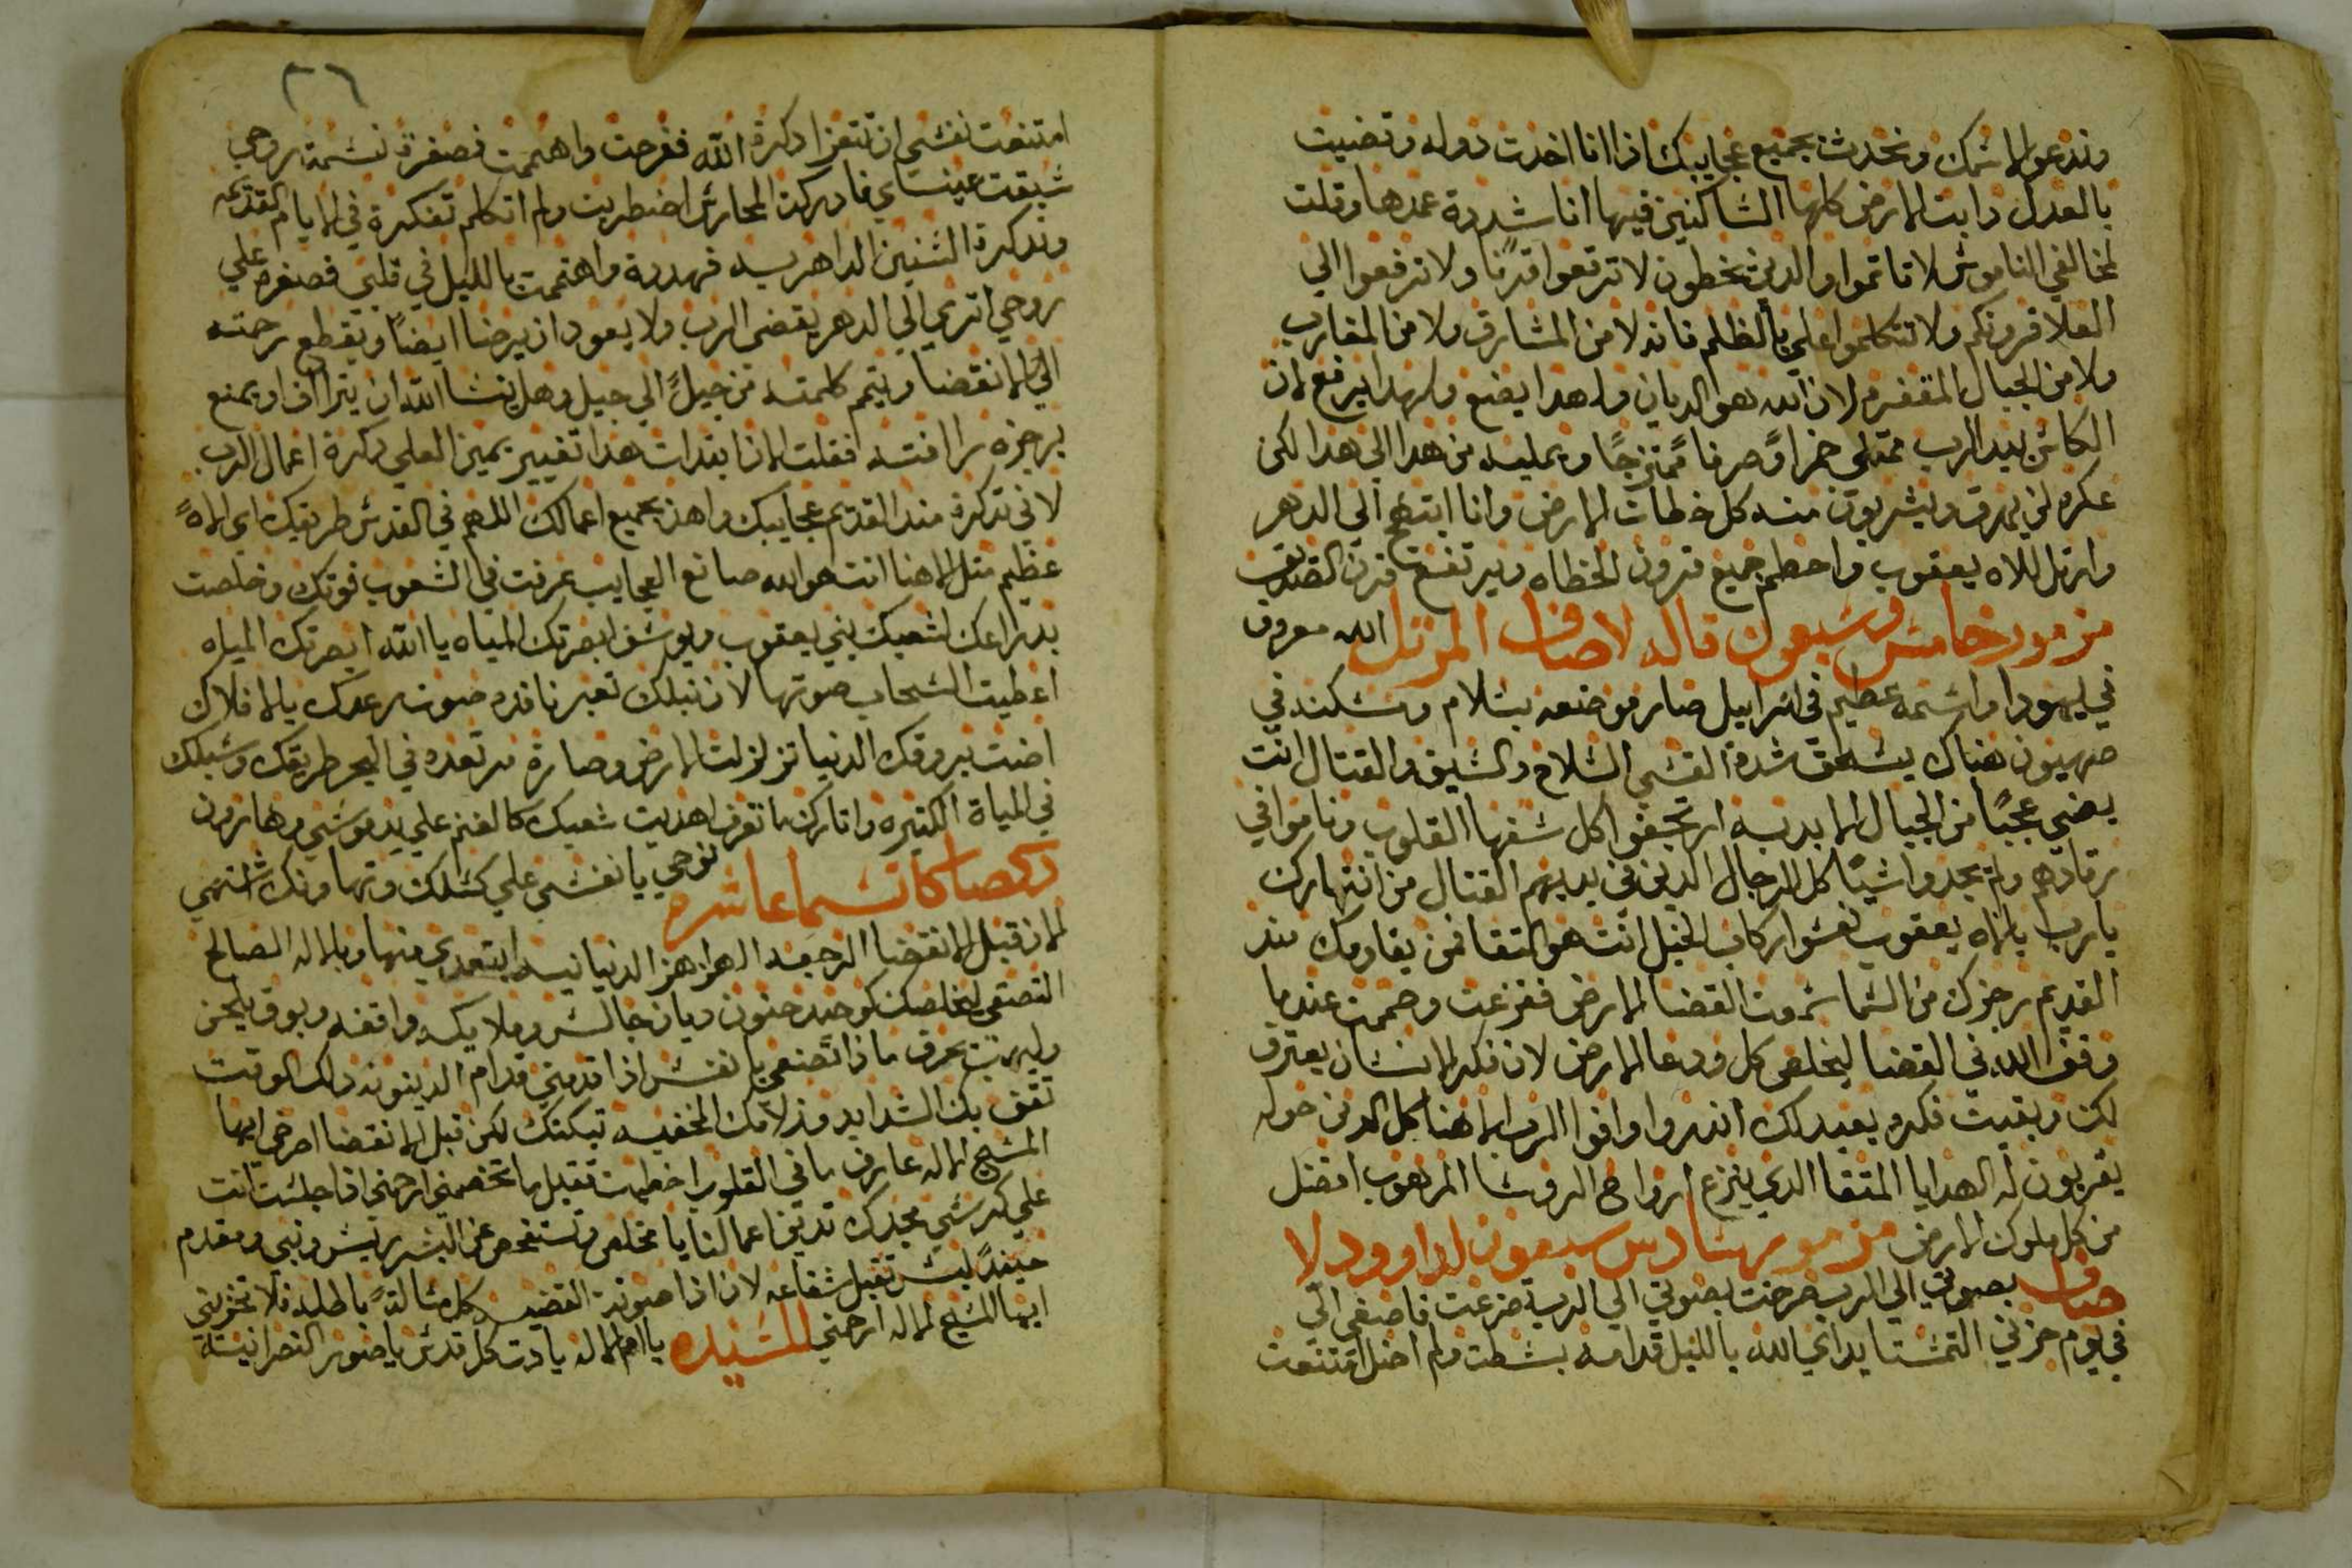 وندعوا لاسمك ونحدث بجميع عجايبك اذا انا اخدت دوله وقضيت
بالعدل دابت الارض كلها الساكنين فيها انا شددة عمدها وقلت
لمخالفي الناموس لا تاتموا والدين يخطون لا ترفعوا قرنا ولا ترفعوا الي
العلا قرونكم ولا تتكلموا علي بالظلم فانه لا من المشارق ولا من المغارب
ولا من الجبال المقفره لان الله هو الديان ولهدا يضع ولهدا يرفع لان
الكاس بيد الرب ممتلي خمرا وصرفا ممتزجا ويمليه من هدا الي هدا لكن
عكره لم يهرق ويشربون منه كل خطات الارض وانا ابتهج الي الدهر
وارتل لالاه يعقوب واحطم جميع قرون الخطاه ويرتفع قرن الصديق
مزمور خامس وسبعون قاله لاصاف المرتل الله معروف
في ليهودا واسمه عظيم في اسراييل صار موضعه بسلام ومسكنه في
صهيون هناك يسحق شدة القسي السلاح والسيف والقتال انت
يضي عجبا من الجبال الابديه ارتجفوا كل سفها القلوب وناموا في
رقادهم ولم يجدوا شيا كل الرجال الدين في يديهم القتال من انتهارك
يارب يالاه يعقوب نعسوا ركاب الخيل انت هو التقا فمن يقاومك مند
القديم رجزك من السما سمعت القضا الارض ففزعت وصمت عندما
وقف الله في القضا ليخلص كل ودعا الارض لان فكر الانسان يعترف
لكن وبقيت فكره يعيد لك اندروا واوفوا الرب الاهنا كل الدين حوله
يقربون له الهدايا المتقا الدي ينزع ارواح الروسا المرهوب افضل
من كل ملوك الارض مزمور سادس سبعون لداوود لا
صاف بصوتي الي الرب صرخت بصوتي الي الرب ضرعت فاصغي الي
في يوم حزني التمست يداي الله بالليل قدامه بسطت ولم اضل امتنعت
٢٦
امتنعت نفسي ان تتعزا دكرة الله ففرحت واهتممت فصغرة نسمة روحي
سبقت عيناي فادركت المحارس اضطربت ولم اتكلم تفكرة في الايام القديمه
وتدكرة السنين الداهريه فهددة واهتممت بالليل في قلبي فصغره علي
روحي اتري الي الدهر يقضي الرب ولا يعود ان يرضا ايضا ويقطع رحمته
الي الانقضا ويتم كلمته من جيل الي جيل وهل ينسا الله ان يتراف او يمنع
برجزه رافته فقلت الان ابتدات هدا تغيير يمين العلي دكرة اعمال الرب
لاني تدكرة مند القديم عجايبك واهذ بجميع اعمالك اللهم في القدس طريقك اي الاه
عظيم متل الاهنا انت هو الله صانع العجايب عرفت في الشعوب قوتك وخلصت
بدراعك شعبك بني يعقوب ويوسف ابصرتك المياه يا الله ابصرتك المياه
اعطيت السحاب صوتها لان نبلك تعبر نافده صوت رعدك بالافلاك
اضت بروقك الدنيا تزلزلت الارض وصارة مرتعده في البحر طريقك وسبلك
في المياة الكتيره واتارك ما تعرف اهديت شعبك كالغنم علي يد موسي وهارون
دكصا كاتسما عاشره نوحي يا نفسي علي كسلك وتهاونك انتهي
الان قبل الانقضا الرجعه الهواهز الدنيانيه ابتعدي منها وبالاله الصالح
التصقي ليخلصك كوحيد حنون ديان جالس وملايكه واقفه وبوق يلحن
ولهيب يحرق ماذا تصنعي يا نفس اذا قدمتي قدام الدينونه دلك الوقت
تقف بك الشدايد وزلاتك المخفيه تبكتك لكن قبل الانقضا اصرخي ايها
المسيح الاله عارف ما في القلوب اخطيت تقبل ما تخصمني ارحمني اذا جلست انت
علي كرسي مجدك تدين اعمالنا يا مخلص وتستفحص عن البشر ريس ونبي ومقدم
حينئد ليس تقبل شفاعه لان اذا صوتة القضيه كل مسالة باطله فلا تخزيني
ايها المسيح الاله ارحمني للسيده يا ام الاله يا دت كل قدس يا صور النصرانية